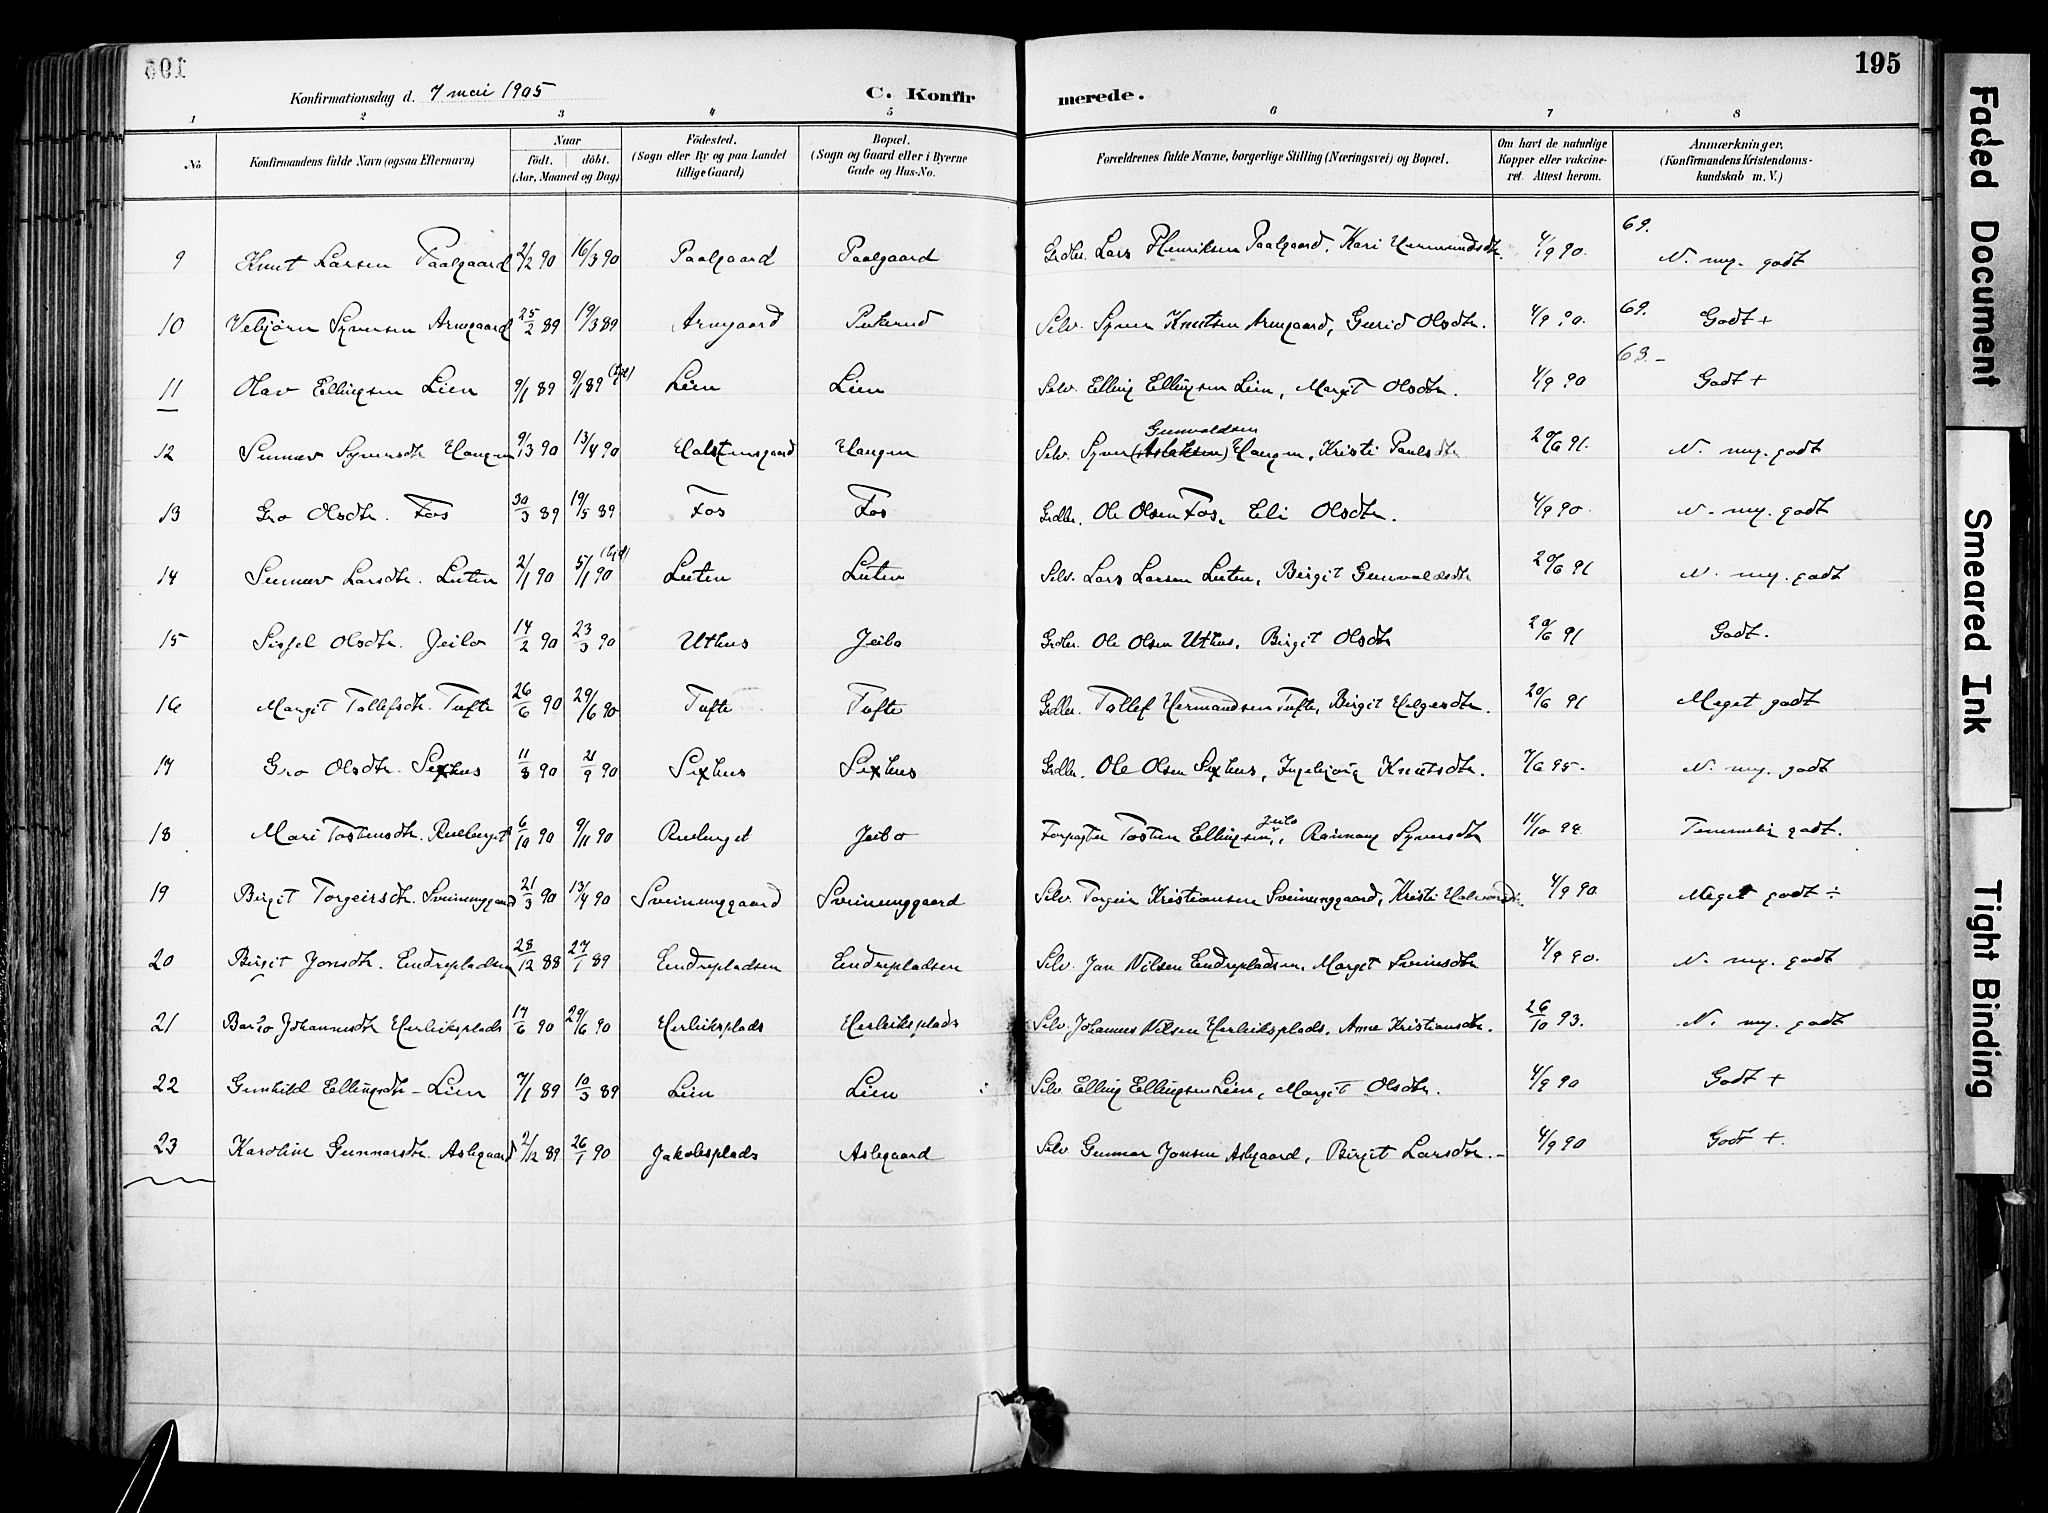 195
Konfirmationsdag d. 7 mai 1905 C. Konfir merede.
1 2 3 4 5 6 7 8
No. Konfirmandens fulde Navn (ogsaa Efternavn) Naar født. døbt. (Aar, Maaned og Dag) Fødested. (Sogn eller By og paa Landet tillige Gaard) Bopæl. (Sogn og Gaard eller i Byerne Gade og Hus-No. Forældrenes fulde Navne, borgerlige Stilling (Næringsvei) og Bopæl. Om havt de naturlige Kopper eller vakcineret. Attest herom. Anmærkninger, (Konfirmandens Kristendomskundskab m. V.)
9 Knut Larsen Paalgaard 2/2 90 16/3 90 Paalgaard Paalgaard Grdbr. Lars Henriksen Paalgaard, Kari Hermundsdtr. 4/9 90. 69. N. my. godt
10 Vebjørn Syversen Arnegaard 25/2 89 19/3 89 Arnegaard Selv. Syver Knutsen Arnegaard, Gurid Olsdtr. 4/9 90. 69. Godt +
11 Olav Ellingsen Lien 9/1 89 9/1 89 Lien Lien Selv. Elling Ellingsen Lien, Margit Olsdtr. 4/9 90 63.- Godt +
12 Sunnev Syversdtr Haugen 9/3 90 13/4 90 Halstensgaard Haugen Selv. Syver (Aslaksen) Gunvaldsen Haugen, Kristi Paulsdtr 20/6 91. N. my. godt
13 Gro Olsdtr. Fos 30/3 89 19/5 89 Fos Fos Grdbr. Ole Olsen Fos, Eli Olsdtr. 4/9 90. N. my. godt
14 Sunnev Larsdtr. Luten 2/1 90 5/1 90 Luten Luten Selv. Lars Larsen Luten, Birgit Gunvaldsdtr 20/6 91 N. my. godt
15 Sissel Olsdtr. Jeilo 14/2 90 23/3 90 Uthus Jeilo Grdbr. Ole Olsen Uthus, Birgit Olsdtr 20/6 91 Godt.
16 Margit Tollefsdtr. Tufte 26/6 90 29/6 90 Tufte Tufte Grdbr. Tollef Hermandsen Tufte, Birgit Helgesdtr. 20/6 91 Meget godt
17 Gro Olsdtr. Sexhus 11/8 90 21/9 90 Sexhus Sexhus Grdbr. Ole Olsen Sexhus, Ingebjørg Knutsdtr. 7/6 95. N. my. godt
18 Mari Tostensdtr. Rueberget 6/10 90 9/11 90 Rueberget Jeilo Forpagter Tosten Ellingsen Jeilo, Rannaug Syversdtr 11/10 94. Temmelig godt.
19 Birgit Torgeirsdtr. Sveinunggaard 21/3 90 13/4 90 Sveinunggaard Sveinunggaard Selv. Torgeir Kristiansen Sveinunggaard, Kristi Halvardsdtr. 4/9 90 Meget godt ÷
20 Birgit Jonsdtr. Endrepladsen 28/12 88 27/1 89 Endrepladsen Endrepladsen Selv. Jon Nilsen Endrepladsen, Margit Sveinsdtr 4/9 90. N. my. godt
21 Barbro Johannesdtr Herleiksplads 17/6 90 29/6 90 Herleiksplads Herleiksplads Selv. Johannes Nilsen Herleiksplads, Anne Kristiansdtr. 26/10 93. N. my. godt
22 Gunhild Ellingsdtr - Lien 7/1 89 10/3 89 Lien Lien Selv Elling Ellingsen Lien, Margit Olsdtr. 4/9 90 Godt +
23 Karoline Gunnarsdtr. Aslegaard 2/12 89 26/1 90 Jakobsplads Aslegaard Selv Gunnar Jonsen Aslegaard, Birgit Larsdtr. 4/9 90 Godt +.
Faded Document
Smeared Ink
Tight Binding